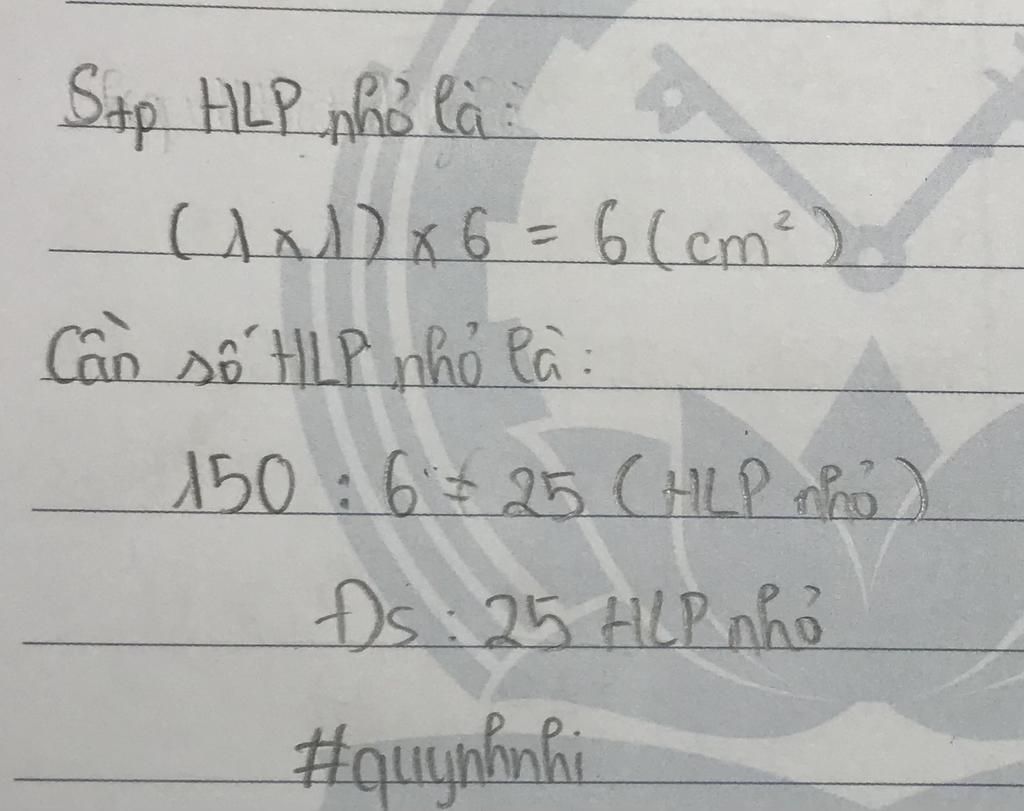 Stp HLP nhỏ là:
(1 x 1) x 6 = 6 (cm²)
Cần số HLP nhỏ là:
150 : 6 = 25 (HLP nhỏ)
Đs: 25 HLP nhỏ
#quynhnhi